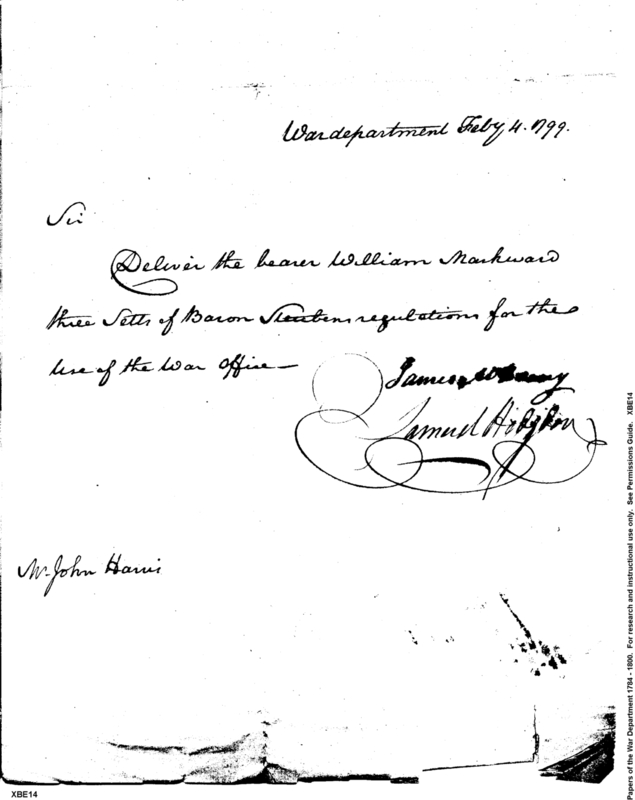 War department Feby 4. 1799.
Sir
Deliver the bearer William Markward
three Setts of Baron Steubens regulations for the
Use of the War Office—
James
Samuel Hodgdon
Mr. John Harris
Papers of the War Department 1784 - 1800. For research and instructional use only. See Permissions Guide. XBE14
XBE14